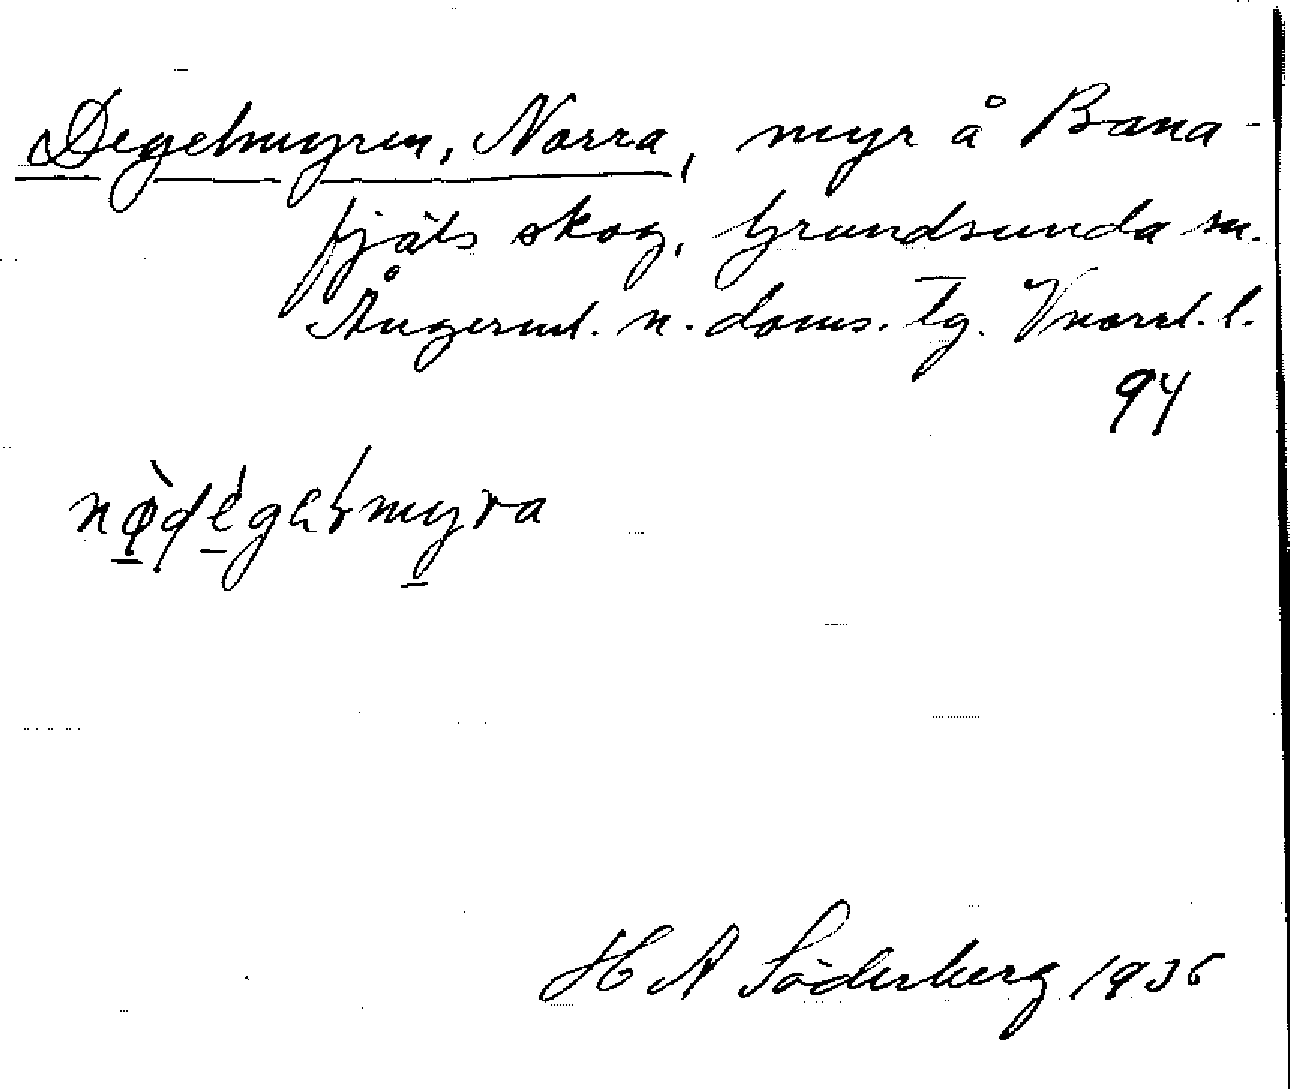 Degelmyren, Norra, myr å Bana-
fjäls skog, Grundsunda sn.
Ångerml. n. doms. tg. Vnorrl. l.
94
H A Söderberg 1935